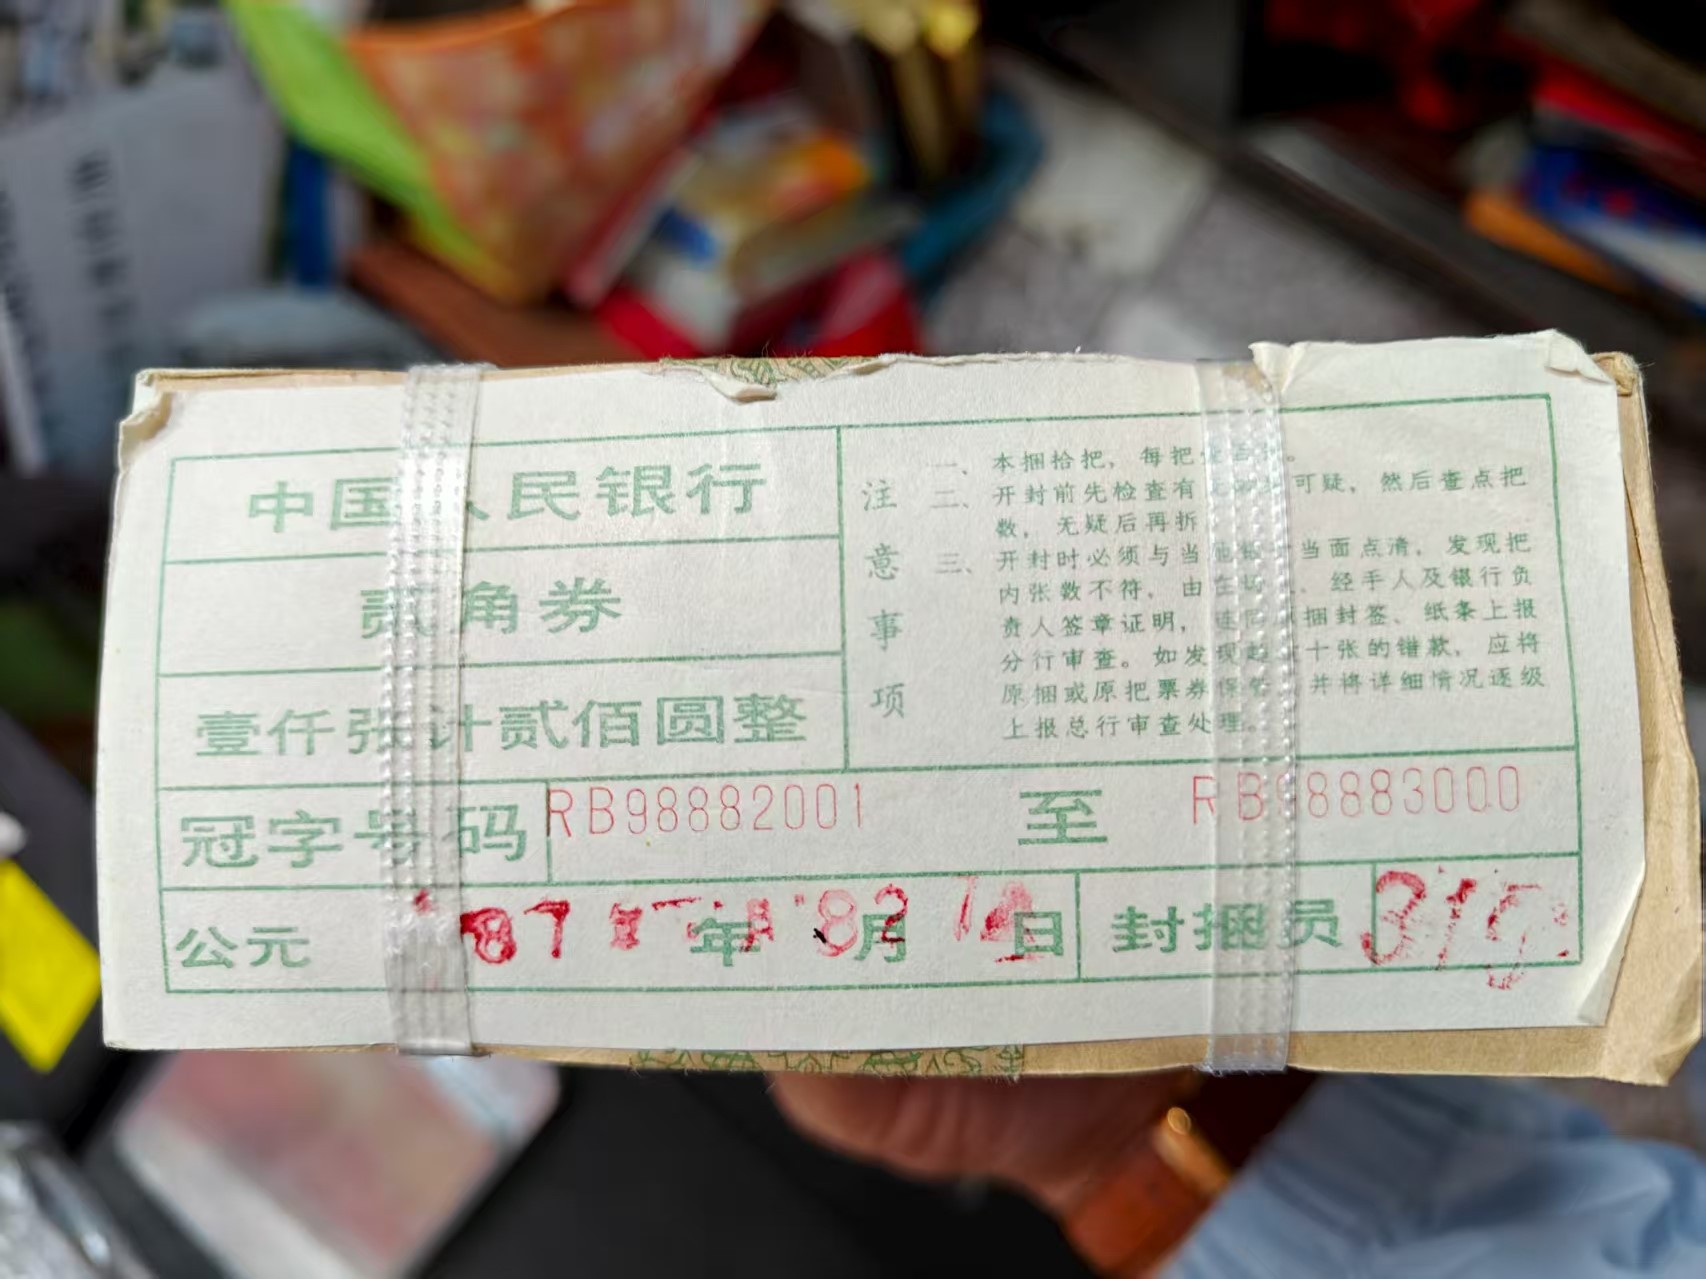 中国人民银行
贰角券
壹仟张计贰佰圆整
注意事项
一、本捆拾把，每把
二、开封前先检查有 可疑，然后查点把
数，无疑后再拆
三、开封时必须与当 当面点清，发现把
内张数不符，由在场 、经手人及银行负
责人签章证明，连同原捆封签、纸条上报
分行审查。如发现超过十张的错款，应将
原捆或原把票券保管 并将详细情况逐级
上报总行审查处理。
冠字号码 RB98882001 至 RB98883000
公元 87 年 82 月 日 封捆员